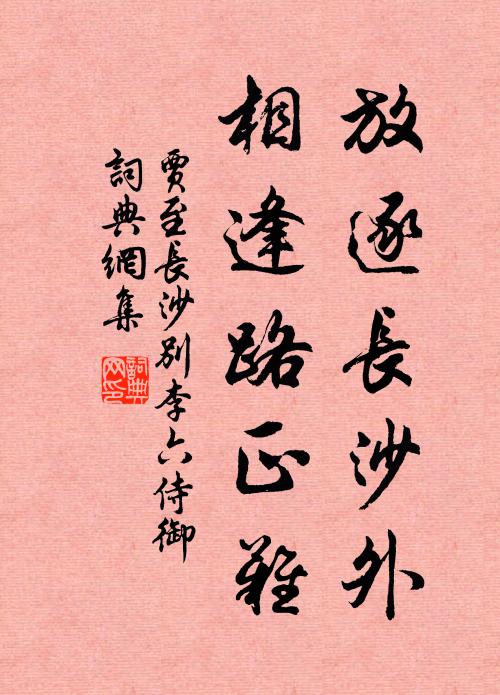 放逐長沙外
相逢路正難
賈至長沙別李六侍御
詞典網集
詞典網印